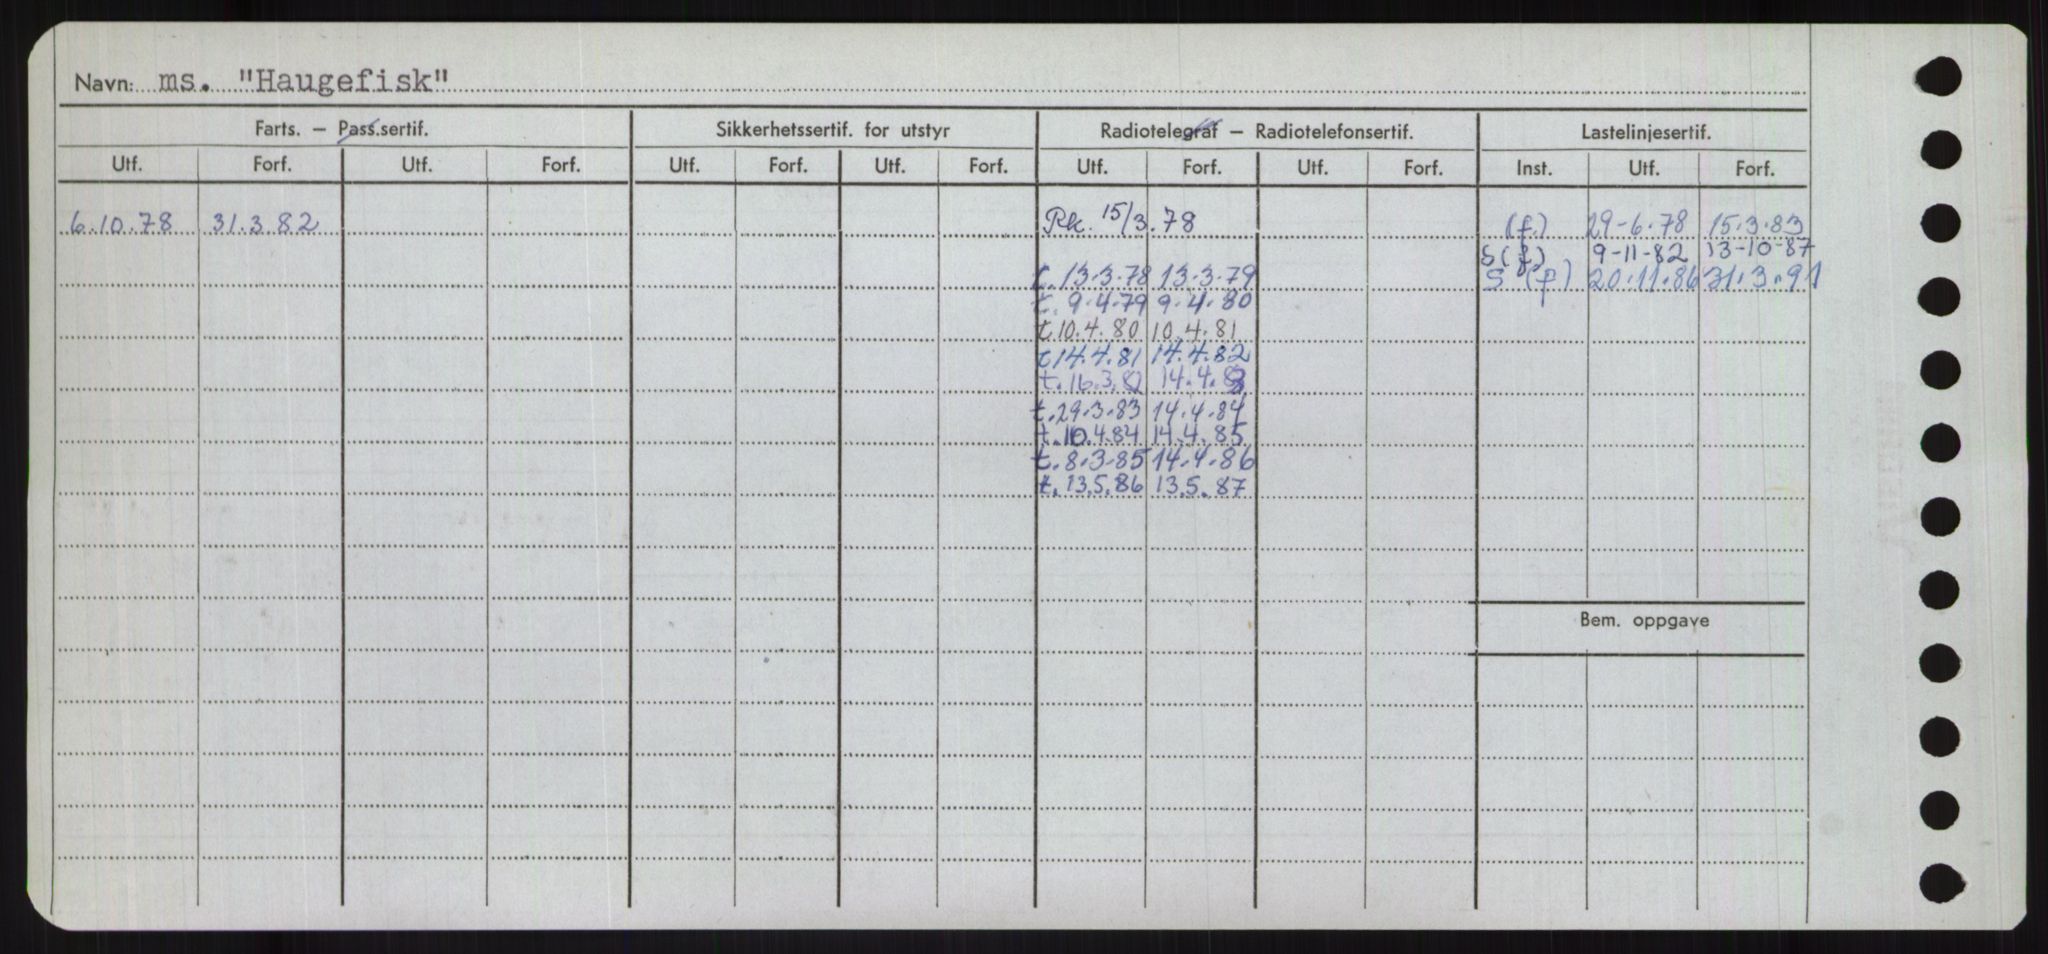 Navn: ms. "Haugefisk"
Farts. – Pass.sertif. Sikkerhetssertif. for utstyr Radiotelegraf – Radiotelefonsertif. Lastelinjesertif.
Utf. Forf. Utf. Forf. Utf. Forf. Utf. Forf. Utf. Forf. Utf. Forf. Inst. Utf. Forf.
6.10.78 31.3.82 Rk. 15/3.78 (f.) 29-6.78 15.3.83
S(f) 9-11-82 13-10-87
t. 13.3.78 13.3.79 S (f) 20.11.86 31.3.91
t. 9.4.79 9.4.80
t 10.4.80 10.4.81
t 14.4.81 14.4.82
t. 16.3.82 14.4.83
t. 29.3.83 14.4.84
t. 10.4.84 14.4.85
t. 8.3.85 14.4.86
t. 13.5.86 13.5.87
Bem. oppgave